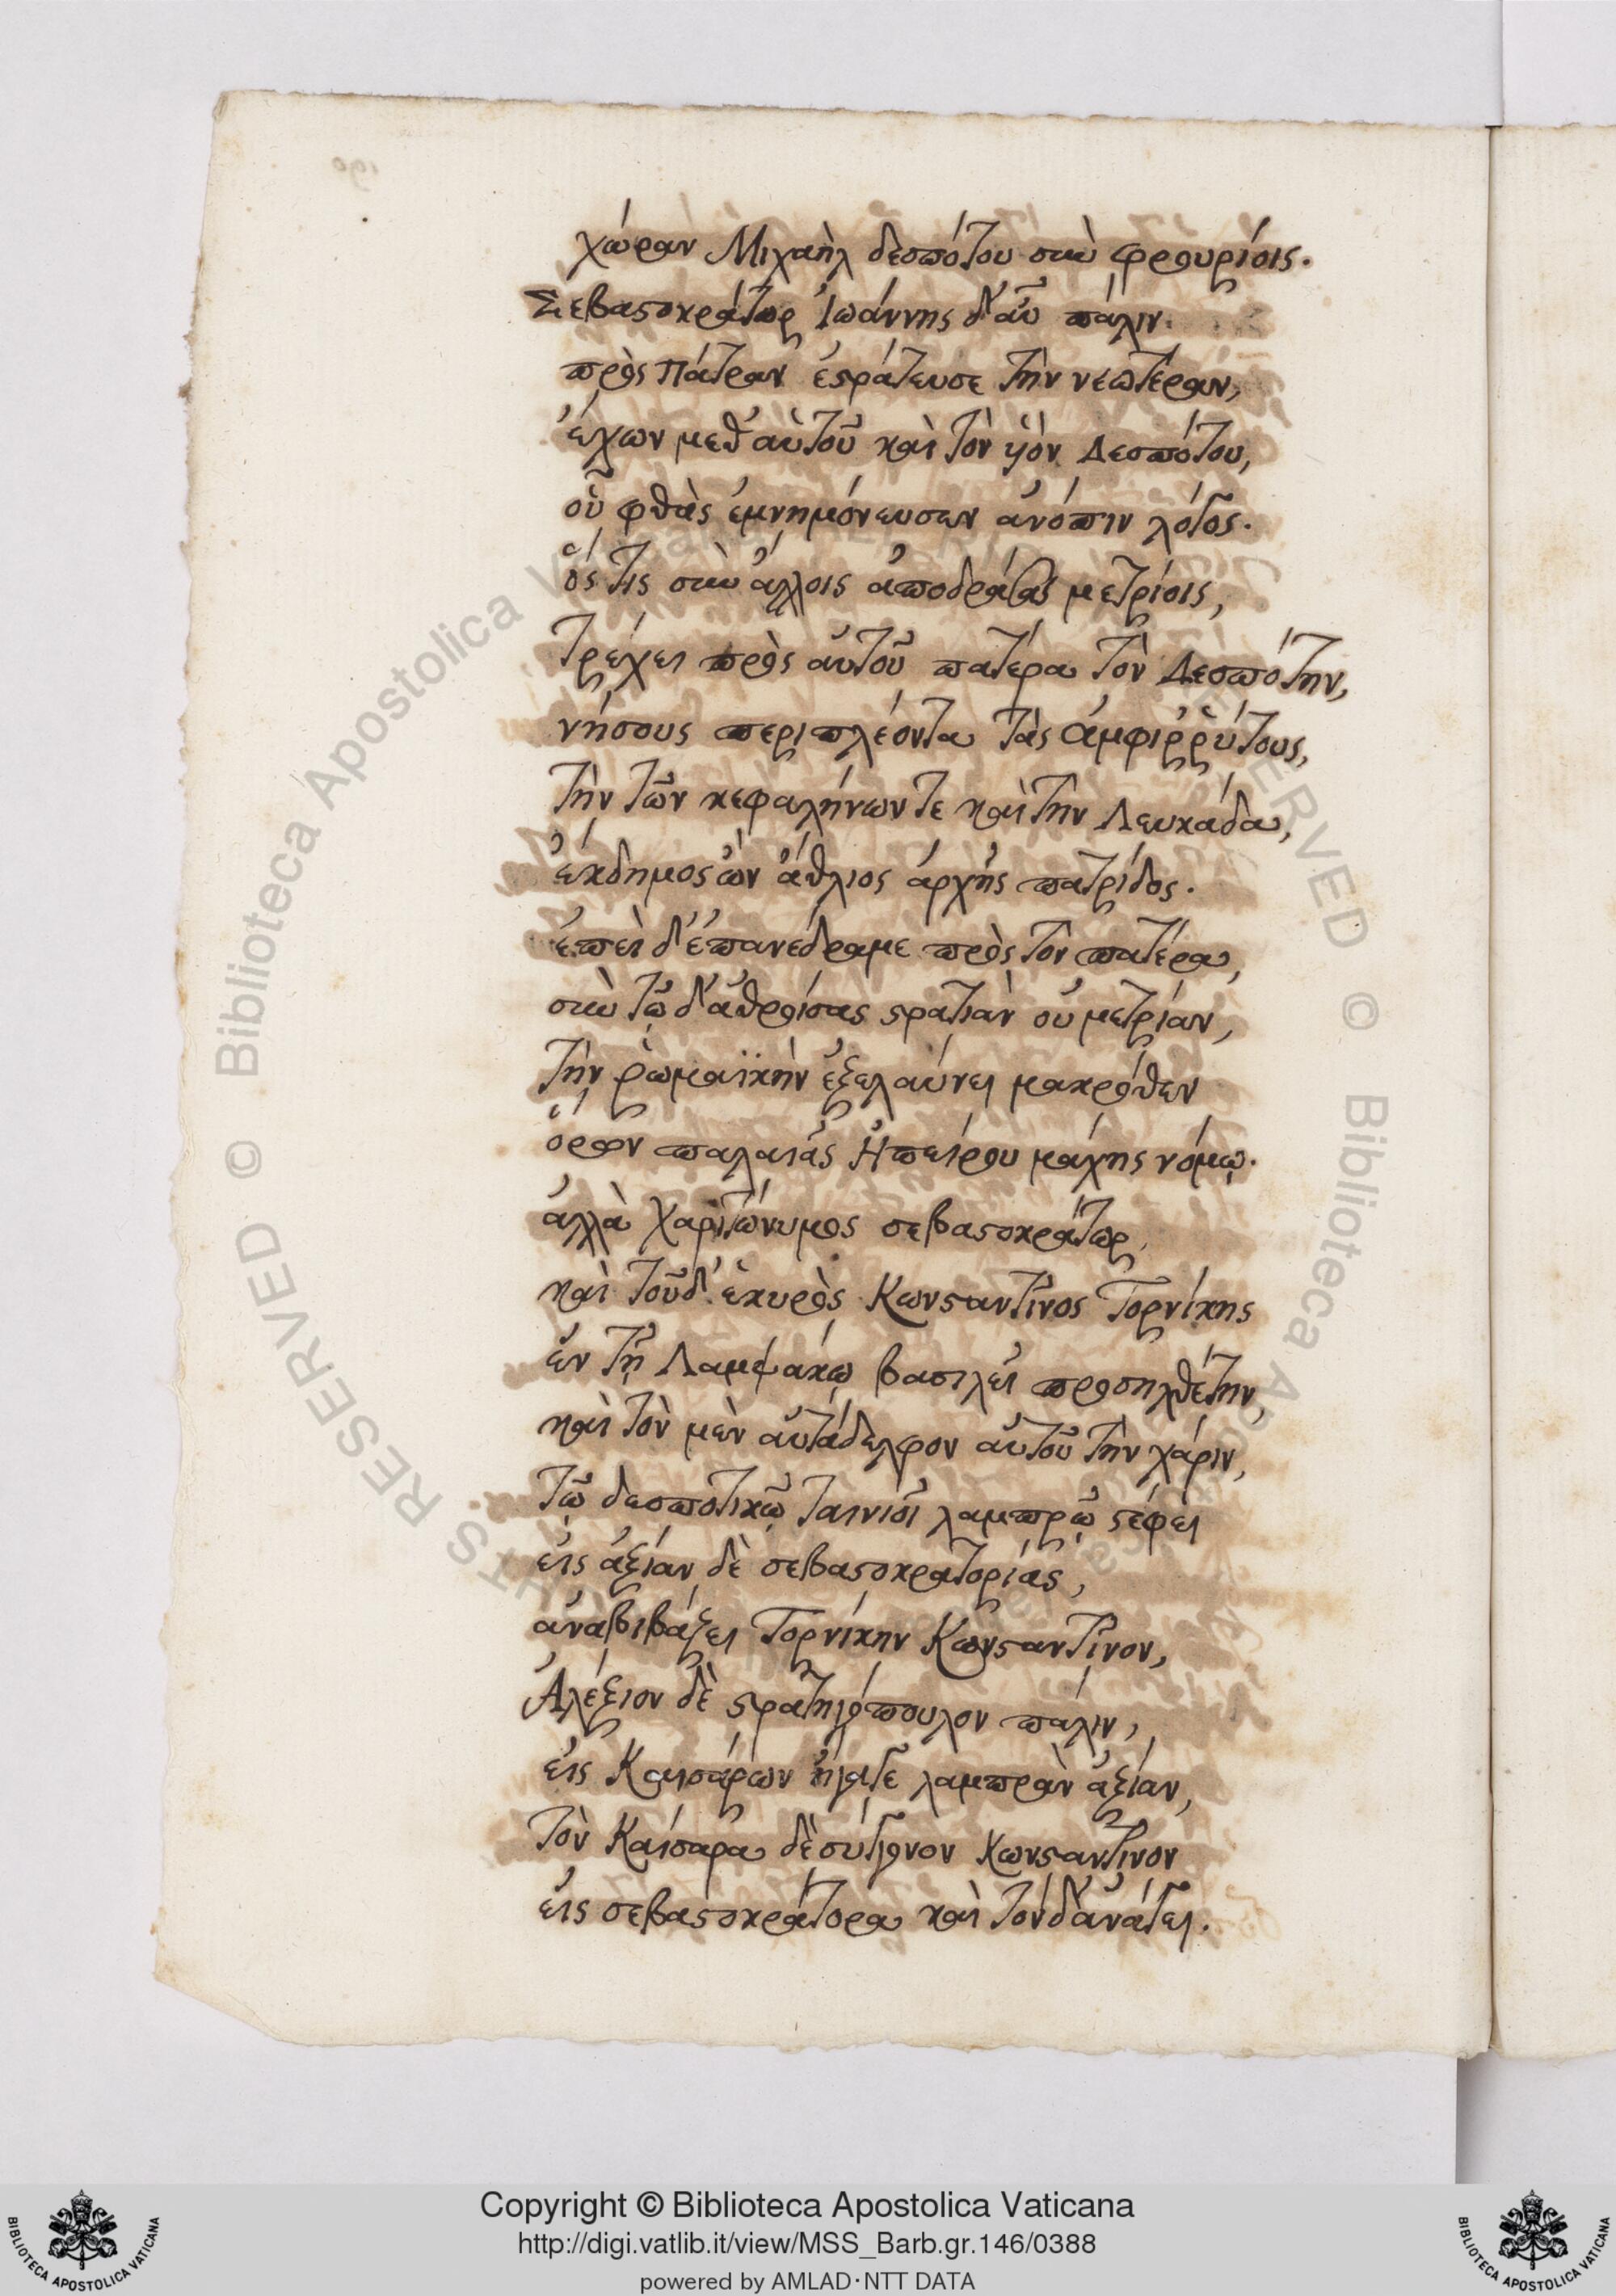 χώραν Μιχαὴλ δεσπότου σὺν φρουρίοις.
Σεβαστοκράτωρ Ἰωάννης δ' αὖ πάλιν
πρὸς Πάτραν ἐστράτευσε τὴν νεωτέραν,
ἔχων μεθ' αὐτοῦ καὶ τὸν ὑὸν Δεσπότου,
οὗ φθὰς ἐμνημόνευσεν ἀνόπιν λόγος.
ὅς τις σὺν ἄλλοις ἀποδράσας μετρίοις,
τρέχει πρὸς αὐτοῦ πατέρα τὸν Δεσπότην,
νήσους περιπλέοντα τὰς ἀμφιῤῥύτους,
τὴν τῶν κεφαλήνων τε καὶ τὴν Λευκάδα,
ἔκδημος ὢν ἄθλιος ἀρχῆς πατρίδος.
ἐπεὶ δ' ἐπανέδραμε πρὸς τὸν πατέρα,
σὺν τῷ δ' ἀθροίσας στρατιὰν οὐ μετρίαν,
τὴν ῥωμαϊκὴν ἐξελαύνει μακρόθεν
ὅρων παλαιᾶς Ἠπείρου μάχης νόμῳ.
ἀλλὰ Χαριτώνυμος σεβαστοκράτωρ,
καὶ τοῦδ' ἑκυρὸς Κωνσταντῖνος Τορνίκης
ἐν τῇ Λαμψάκῳ βασιλεῖ προσηλθέτην,
καὶ τὸν μὲν αὐτάδελφον αὐτοῦ τὴν χάριν,
τῷ δεσποτικῷ ταινιοῖ λαμπρῷ στέφει
εἰς ἀξίαν δὲ σεβαστοκρατορίας,
ἀναβιβάζει Τορνίκην Κωνσταντῖνον,
Ἀλέξιον δὲ στρατηγόπουλον πάλιν,
εἰς Καισάρων ἤγαγε λαμπρὰν ἀξίαν,
τὸν Καίσαρα δὲ σύγγονον Κωνσταντῖνον
εἰς σεβαστοκράτορα καὶ τόνδ' ἀνάγει.
© Biblioteca Apostolica Vaticana
RIGHTS RESERVED
Copyright © Biblioteca Apostolica Vaticana
http://digi.vatlib.it/view/MSS_Barb.gr.146/0388
powered by AMLAD·NTT DATA
BIBLIOTECA APOSTOLICA VATICANA
BIBLIOTECA APOSTOLICA VATICANA